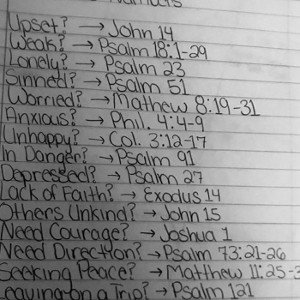 Upset? → John 14
Weak? → Psalm 18:1-29
Lonely? → Psalm 23
Sinned? → Psalm 51
Worried? → Mathew 8:19-31
Anxious? → Phil. 4:4-9
Unhappy? → Col. 3:12-17
In Danger? → Psalm 91
Depressed? → Psalm 27
Lack of Faith? → Exodus 14
Others Unkind? → John 15
Need Courage? → Joshua 1
Need Direction? → Psalm 73:21-26
Seeking Peace? → Matthew 11:25-3
Leaving on a Trip? → Psalm 121